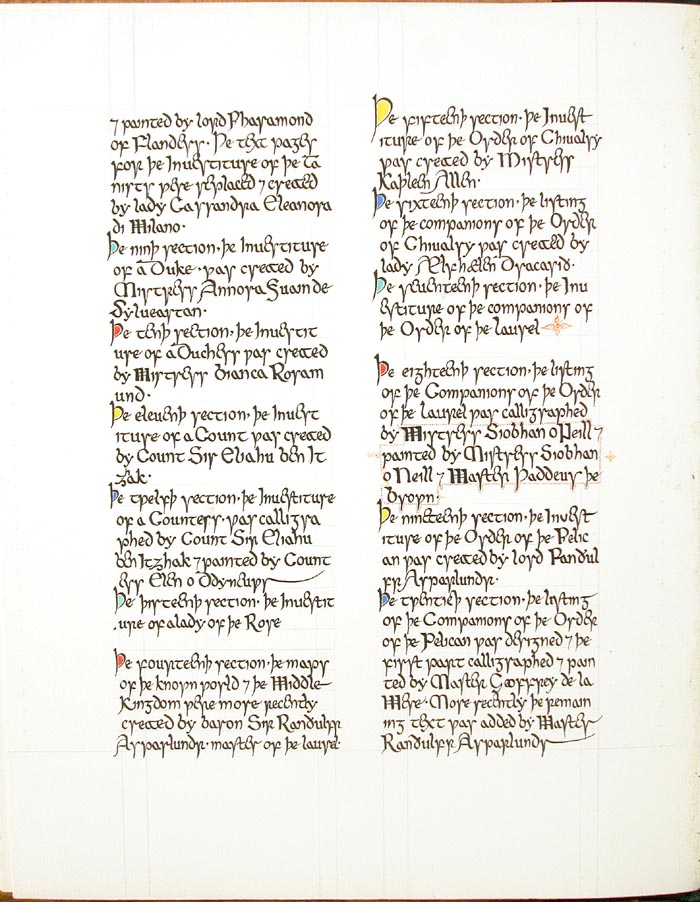 ⁊ painted by lord Pharamond
of Flanders. Þe that pages
for þe Investiture of þe Ta
nists ƿere replaced ⁊ created
by lady Cassandra Eleanora
di Milano·
Þe ninþ section· þe Investiture
of a Duke· ƿas created by
Mistress Annora Suainde
Sylveastan·
Þe tenþ section· þe Investit
ure of a Duchess ƿas created
by Mistress Bianca Rosam
und·
Þe elevenþ section· þe Invest
iture of a Count ƿas created
by Count Sir Eliahu ben It
zhak·
Þe tƿelfþ section· þe Investiture
of a Countess· ƿas calligra
phed by Count Sir Eliahu
ben Itzhak ⁊ painted by Count
ess Elen o Ddyneuƿr
Þe þirteenþ section· þe Investit
ure of a lady of þe Rose
Þe fourteenþ section· þe maps
of þe knoƿn ƿorld ⁊ þe Middle
Kingdom ƿere more recently
created by baron Sir Randulfr
Asparlundr· master of þe laurel·
Þe fifteenþ section· þe Invest
iture of þe Order of Chivalry
ƿas created by Mistress
Kaþlen Allen·
Þe sixteenþ section· þe listing
of þe companions of þe Order
of Chivalry ƿas created by
lady Ælfhælen Dracasid·
Þe seventeenþ section· þe Inv
estiture of þe companions of
þe Order of þe laurel
Þe eighteenþ section· þe listing
of þe Companions of þe Order
of þe laurel ƿas calligraphed
by Mistress Siobhan o Neill ⁊
painted by Mistress Siobhan
o Neill ⁊ Master Þaddeus þe
broƿn·
Þe nineteenþ section· þe Invest
iture of þe Order of þe Pelic
an ƿas created by lord Randul
fr Asparlundr·
Þe tƿentieþ section· þe listing
of þe Companions of þe Order
of þe Pelican ƿas designed ⁊ þe
first part calligraphed ⁊ pain
ted by Master Geoffrey de la
Mere· More recently þe remain
ing that ƿas added by Master
Randulfr Asparlundr